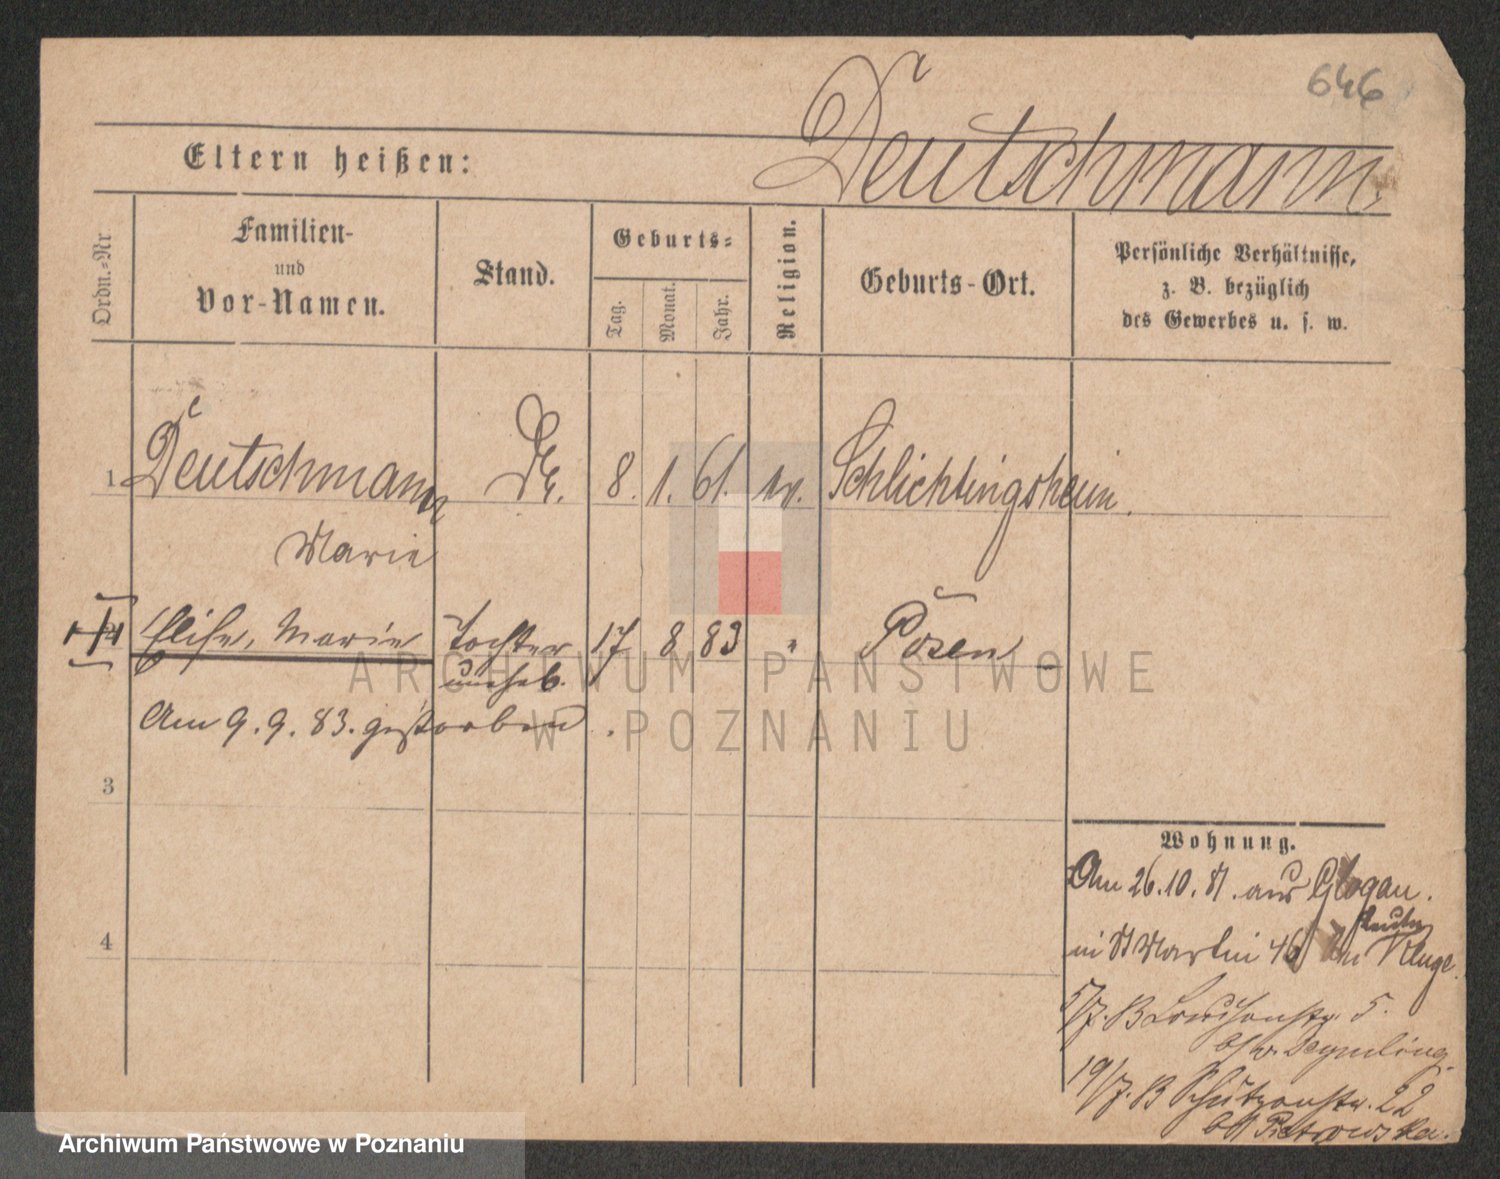 646
Deutschmann.
Eltern heißen:
Ordn.-Nr
Familien-
und
Vor-Namen.
Stand.
Geburts-
Tag.
Monat.
Jahr.
Religion.
Geburts-Ort.
Persönliche Verhältnisse,
z. B. bezüglich
des Gewerbes u. s. w.
1 Deutschmann 8. 1. 61. ev. Schlichtingsheim.
Marie
Elise, Marie Tochter 17 8 83 " Posen
unehel.
Am 9. 9. 83. gestorben.
3
4
Wohnung.
Am 26.10.81. aus Glogau.
in St Martin 46 Kluge.
5/7. 83 Louisenstr. 5.
19/7. 83 Schützenstr. 22
bei Pietrowska.
ARCHIWUM PAŃSTWOWE
W POZNANIU
Archiwum Państwowe w Poznaniu